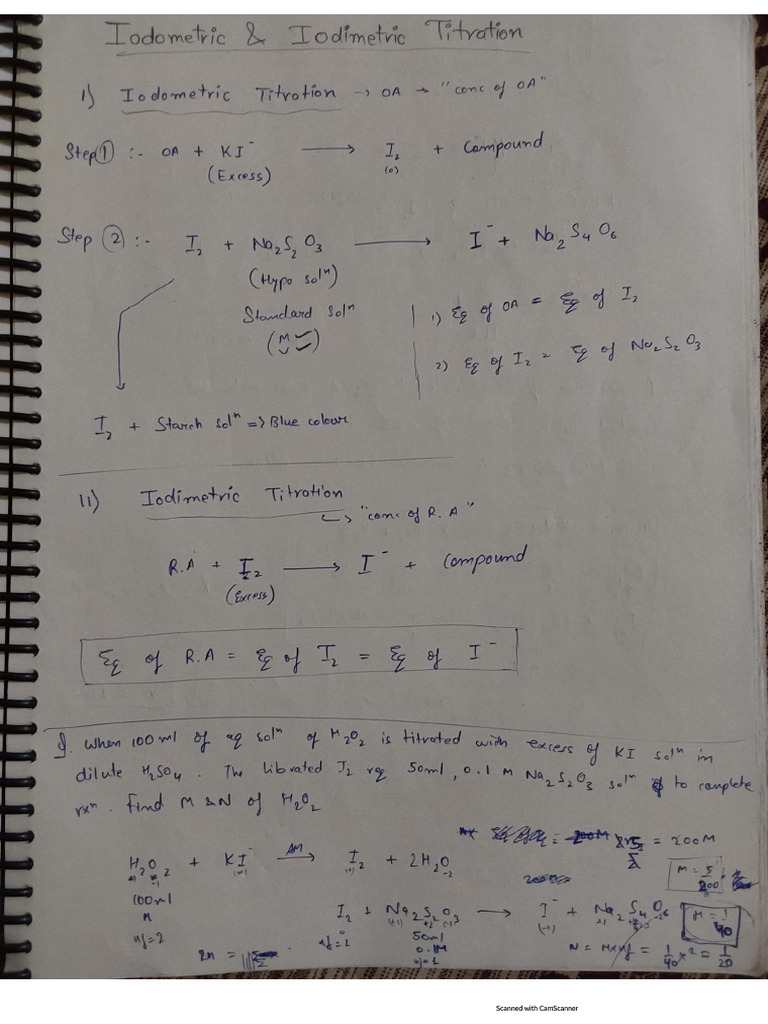 Iodometric & Iodimetric Titration
I) Iodometric Titration → OA → "conc of OA"
Step ① :- OA + KI⁻ → I₂ + Compound
(Excess) (0)
Step ② :- I₂ + Na₂S₂O₃ → I⁻ + Na₂S₄O₆
(Hypo solⁿ)
Standard solⁿ
(M)
1) Eq of OA = Eq of I₂
2) Eq of I₂ = Eq of Na₂S₂O₃
I₂ + Starch solⁿ => Blue colour
II) Iodimetric Titration
↳ "conc of R.A"
R.A + I₂ → I⁻ + Compound
(Excess)
Eq of R.A = Eq of I₂ = Eq of I⁻
Q. When 100 ml of aq solⁿ of H₂O₂ is titrated with excess of KI solⁿ in
dilute H₂SO₄. The librated I₂ req 50ml, 0.1 M Na₂S₂O₃ solⁿ to complete
rxⁿ. Find M & N of H₂O₂
= 200M
H₂O₂ + KI⁻ → I₂ + 2H₂O
M = 5/200
100ml
M
nf=2
I₂ + Na₂S₂O₃ → I⁻ + Na₂S₄O₆
M = 1/40
nf=2
50ml
0.1M
nf=1
2n =
N = M×nf = 1/40 × 2 = 1/20
Scanned with CamScanner